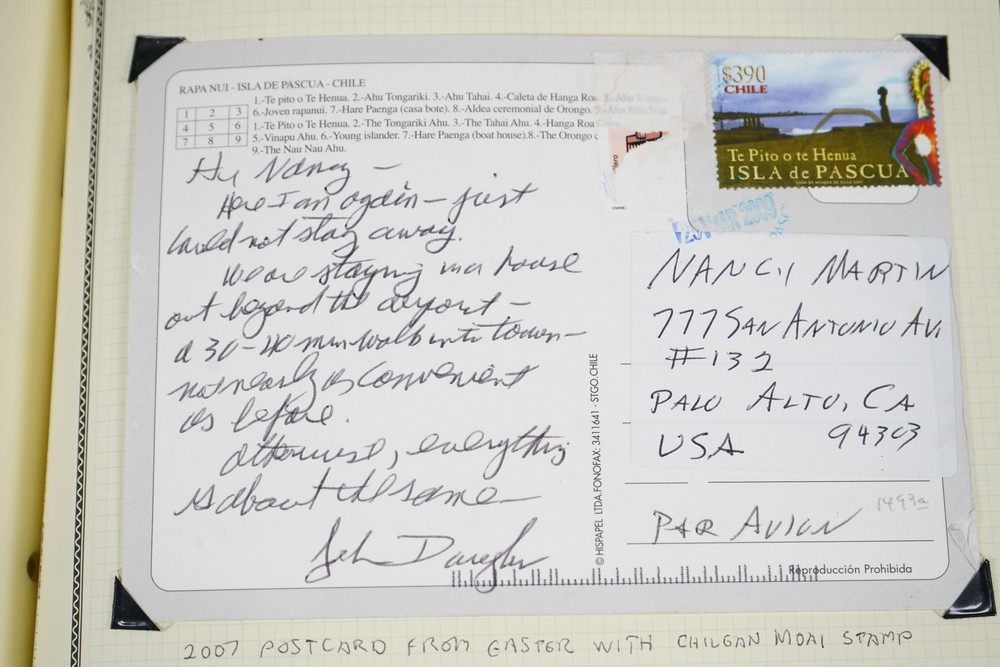 RAPA NUI - ISLA DE PASCUA - CHILE
1 2 3
4 5 6
7 8 9
1.-Te pito o Te Henua. 2.-Ahu Tongariki. 3.-Ahu Tahai. 4.-Caleta de Hanga Roa. 5.-Ahu Vinapu.
6.-Joven rapanui. 7.-Hare Paenga (casa bote). 8.-Aldea ceremonial de Orongo. 9.-Ahu Nau Nau
1.-Te Pito o Te Henua. 2.-The Tongariki Ahu. 3.-The Tahai Ahu. 4.-Hanga Roa
5.-Vinapu Ahu. 6.-Young islander. 7.-Hare Paenga (boat house).8.-The Orongo c
9.-The Nau Nau Ahu.
Hi, Nancy -
Here I am again - just
could not stay away.
We are staying in a house
out beyond the airport -
a 30-40 min walk into town -
not nearly as convenient
as before.
Otherwise, everything
is about the same -
© HISPAPEL LTDA.FONOFAX: 3411641 - STGO.CHILE
$390
CHILE
Te Pito o te Henua
ISLA de PASCUA
MAR 2009
NANCY MARTIN
777 SAN ANTONIO AV.
#132
PALO ALTO, CA
USA 94303
1493a
PAR AVION
Reproducción Prohibida
2007 POSTCARD FROM EASTER WITH CHILEAN MOAI STAMP